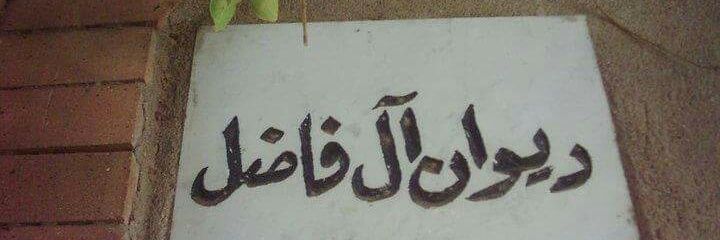 ديوان آل فاضل